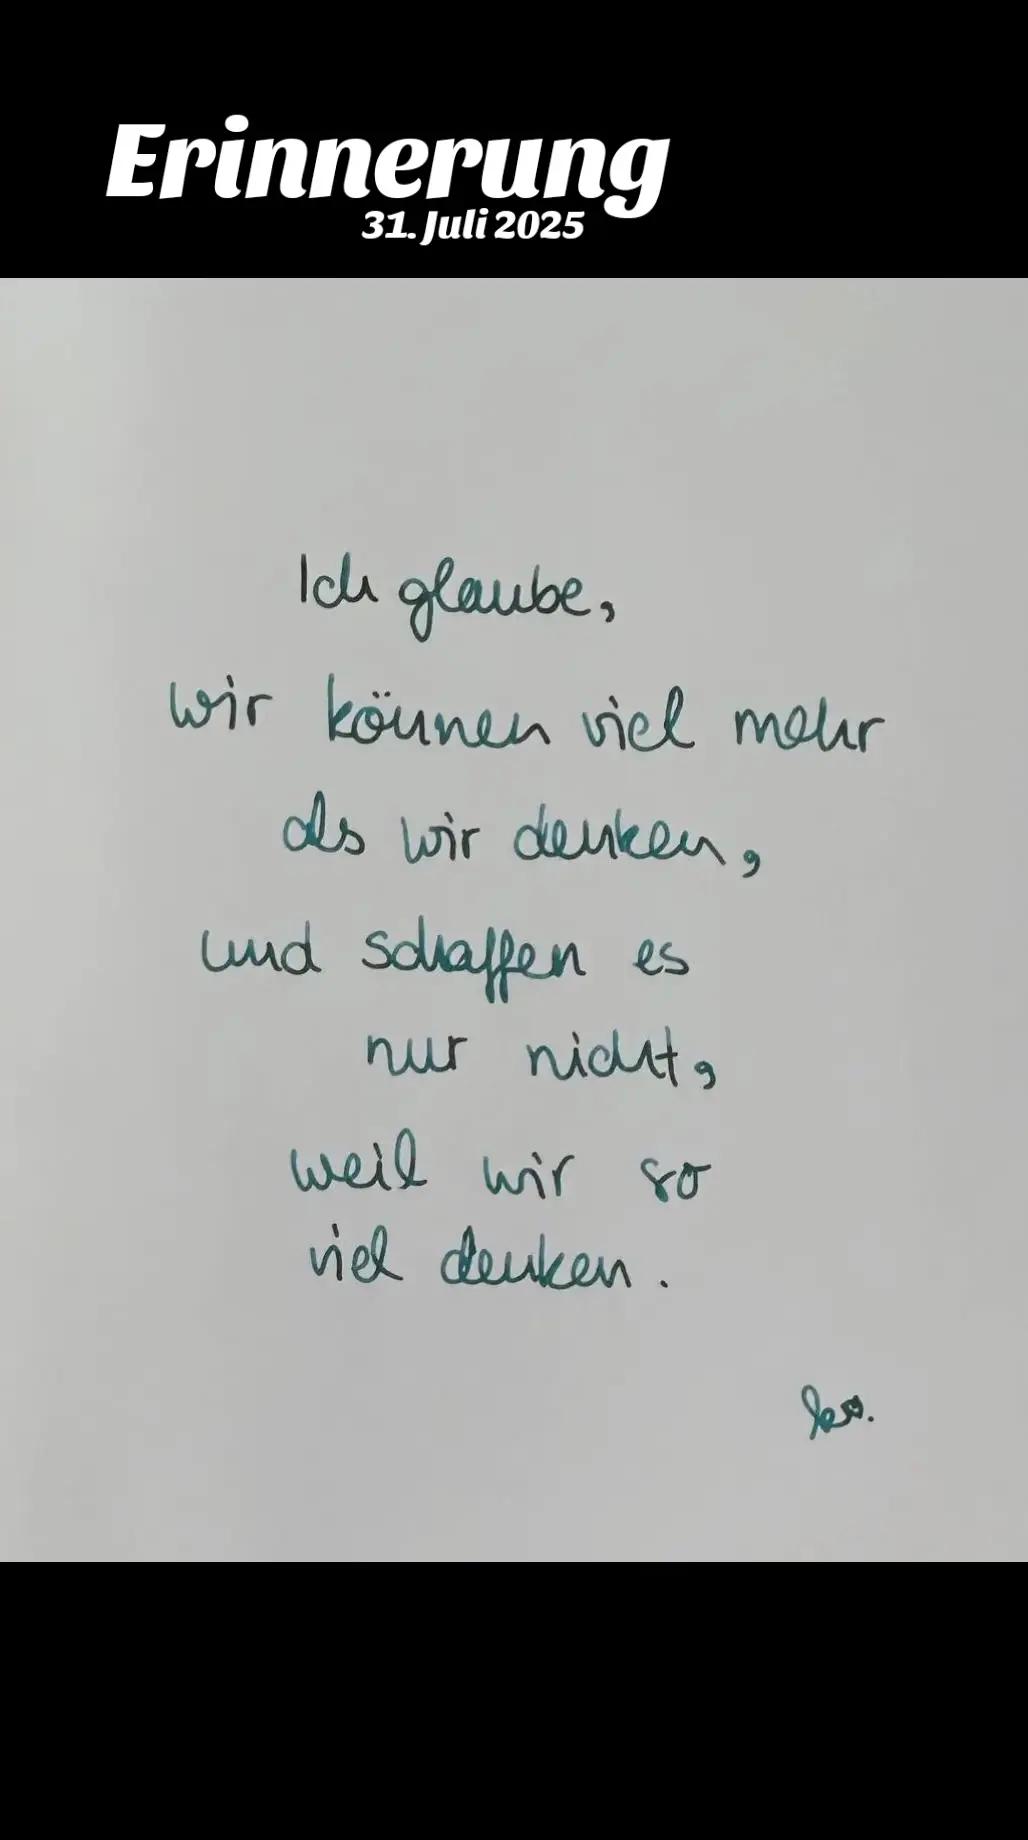 Erinnerung
31. Juli 2025
Ich glaube,
wir können viel mehr
als wir denken,
und schaffen es
nur nicht,
weil wir so
viel denken.